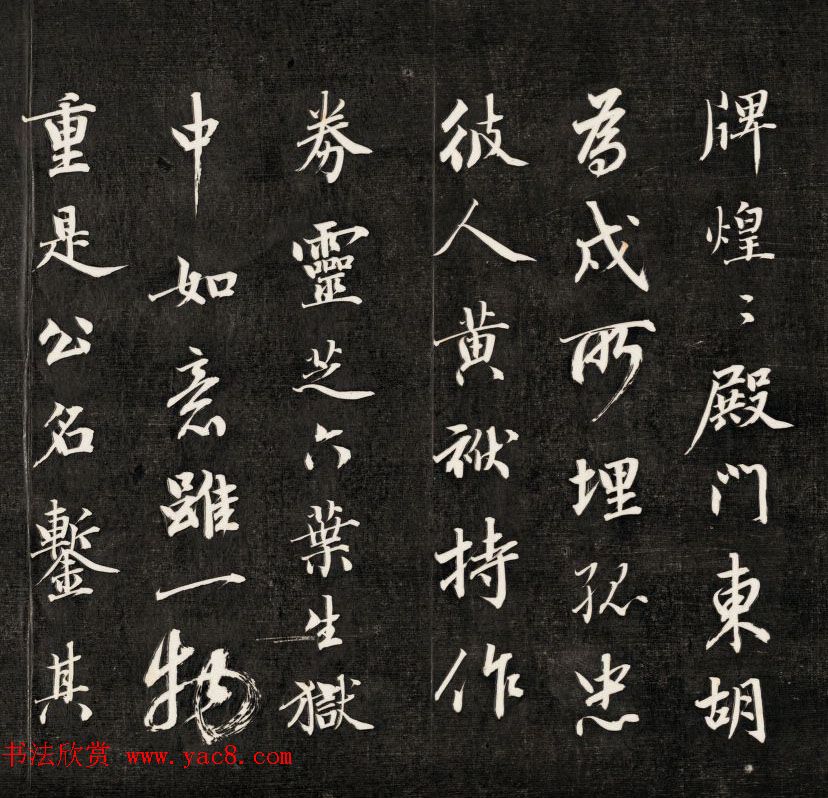 牌煌〻殿門東胡
為戍所埋孤忠
彼人黄袱持作
劵靈芝六葉生獄
中如意雖一物
重是公名鏨其
书法欣赏 www.yac8.com